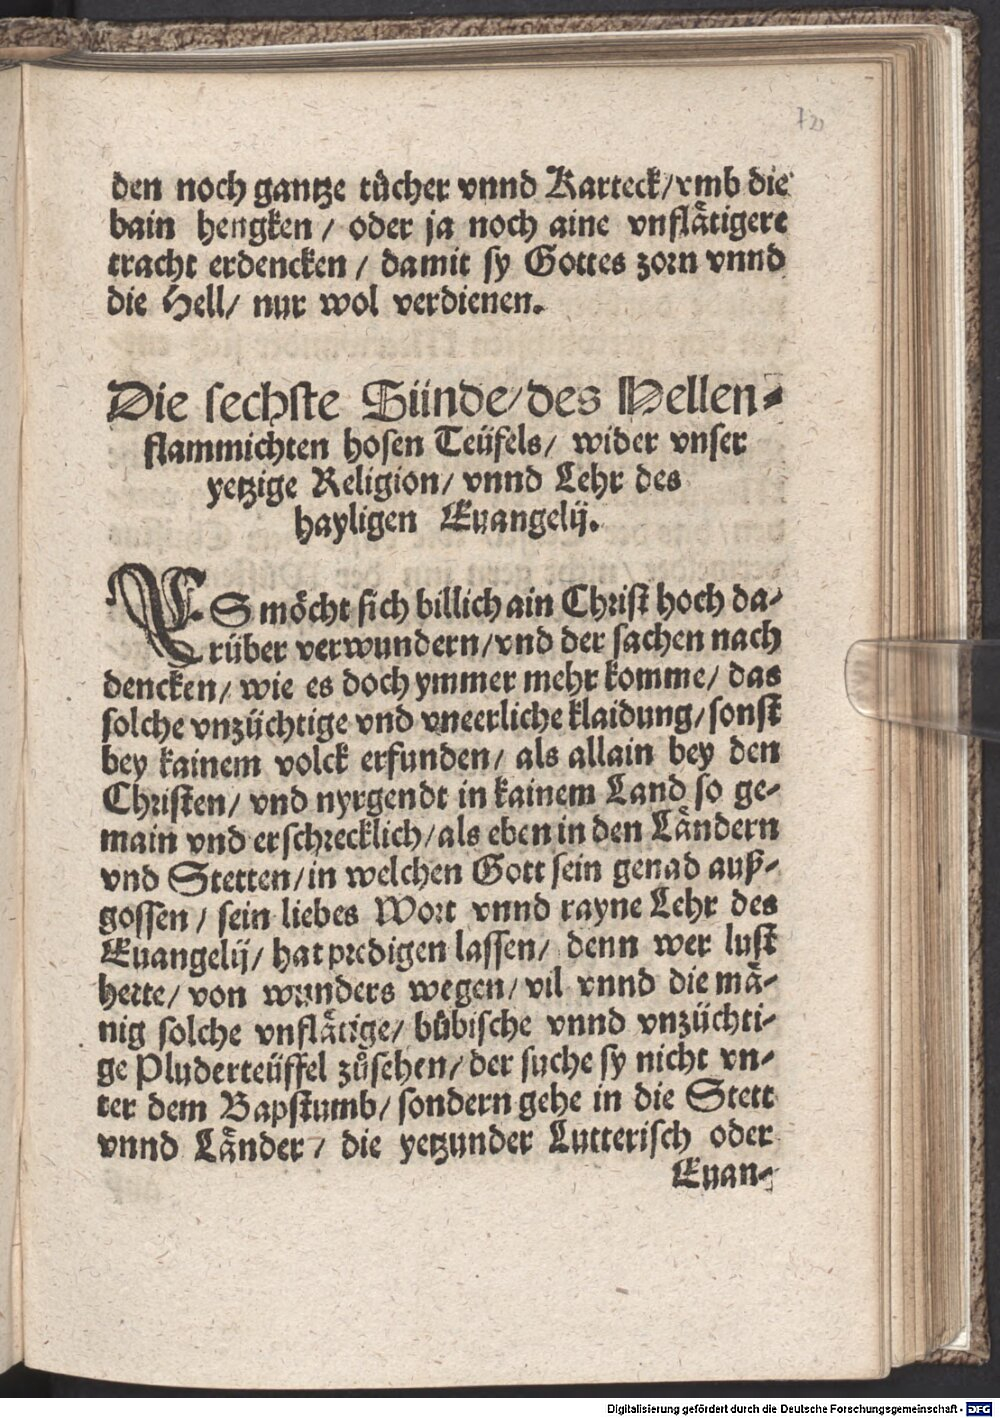 den noch gantze tůcher vnnd Karteck/ vmb die
bain hengken / oder ja noch aine vnflätigere
tracht erdencken / damit sy Gottes zorn vnnd
die Hell/ nur wol verdienen.
Die sechste Sünde/ des Hellen-
flammichten hosen Teüfels/ wider vnser
yetzige Religion/ vnnd Lehr des
hayligen Euangelij.
ES möcht sich billich ain Christ hoch da-
rüber verwundern/ vnd der sachen nach
dencken/ wie es doch ymmer mehr komme/ das
solche vnzüchtige vnd vneerliche klaidung/ sonst
bey kainem volck erfunden/ als allain bey den
Christen/ vnd nyrgendt in kainem Land so ge-
main vnd erschrecklich/ als eben in den Ländern
vnd Stetten/ in welchen Gott sein genad auß-
gossen / sein liebes Wort vnnd rayne Lehr des
Euangelij/ hat predigen lassen/ denn wer lust
hette/ von wunders wegen/ vil vnnd die mä-
nig solche vnflätige/ bůbische vnnd vnzüchti-
ge Pluderteüffel zůsehen/ der suche sy nicht vn-
ter dem Bapstumb/ sondern gehe in die Stett
vnnd Länder/ die yetzunder Lutterisch oder
Euan-
Digitalisierung gefördert durch die Deutsche Forschungsgemeinschaft - DFG